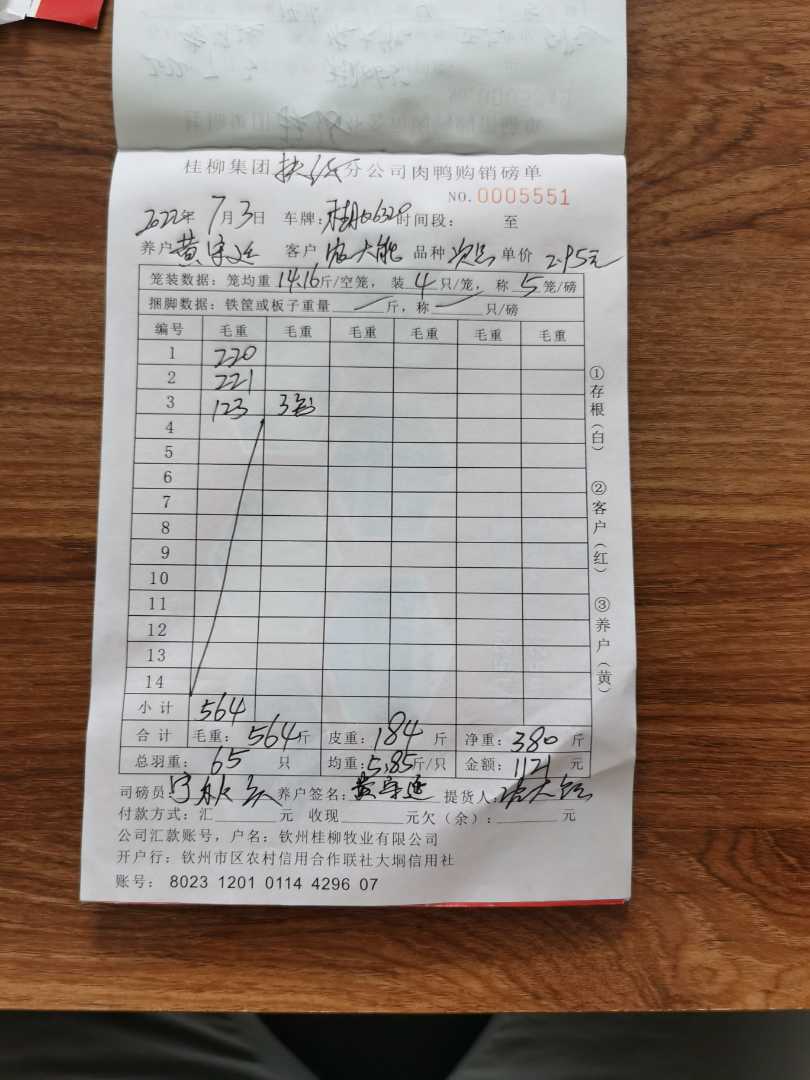 桂柳集团扶绥分公司肉鸭购销磅单
NO.0005551
2022年7月3日 车牌: 时间段: 至
养户黄宗廷 客户 大能 品种 单价 2.95元
笼装数据:笼均重14.16斤/空笼,装4只/笼,称5笼/磅
捆脚数据:铁筐或板子重量 斤,称 只/磅
编号 毛重 毛重 毛重 毛重 毛重 毛重
1 220
2 221
3 123 3
4
5
6
7
8
9
10
11
12
13
14
小计 564
合计 毛重:564斤 皮重:184斤 净重:380斤
总羽重:65只 均重:5.85斤/只 金额:1121元
司磅员: 养户签名:黄宗廷 提货人:
付款方式:汇 元 收现 元欠(余): 元
公司汇款账号,户名:钦州桂柳牧业有限公司
开户行:钦州市区农村信用合作联社大垌信用社
账号:8023 1201 0114 4296 07
①存根(白) ②客户(红) ③养户(黄)